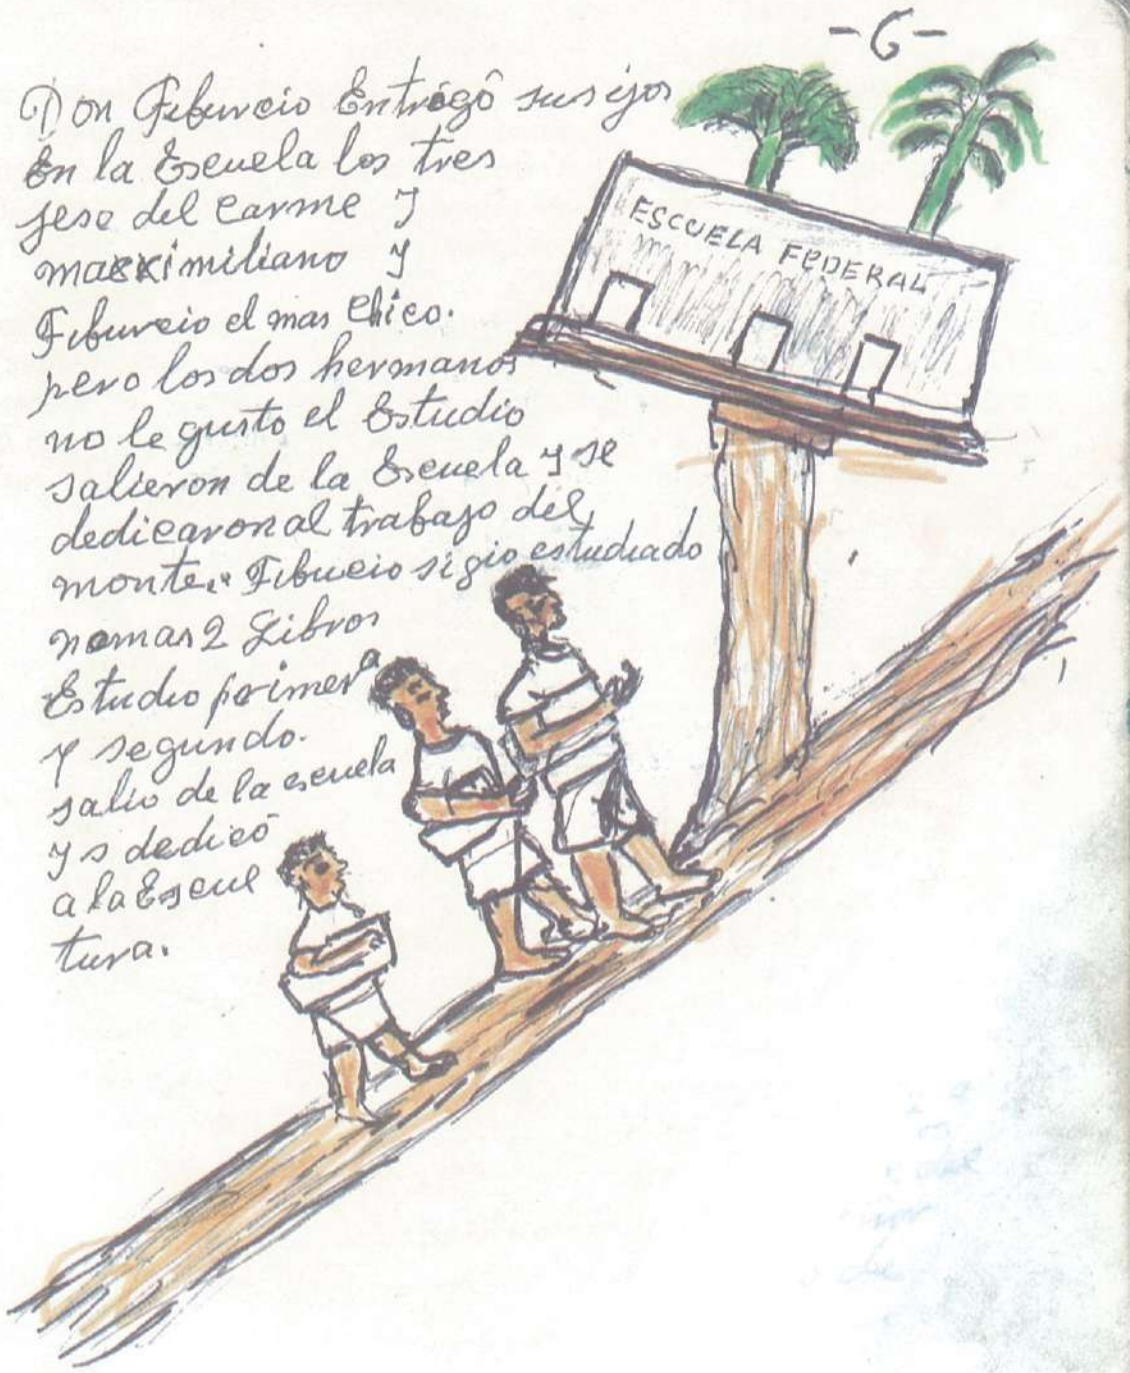 -6-
Don Tiburcio Entrégó sus ijos
En la Escuela los tres
jese del Carme y
maxximiliano y
Tiburcio el mas Chico.
pero los dos hermanos
no le gusto el Estudio
salieron de la Escuela y se
dedicaron al trabajo del
monte.. Tibucio sigio estudiado
nomas 2 Libros
Estudio primera
y segundo.
salio de la escuela
y s dedicó
a la Escul
tura.
ESCUELA FEDERAL